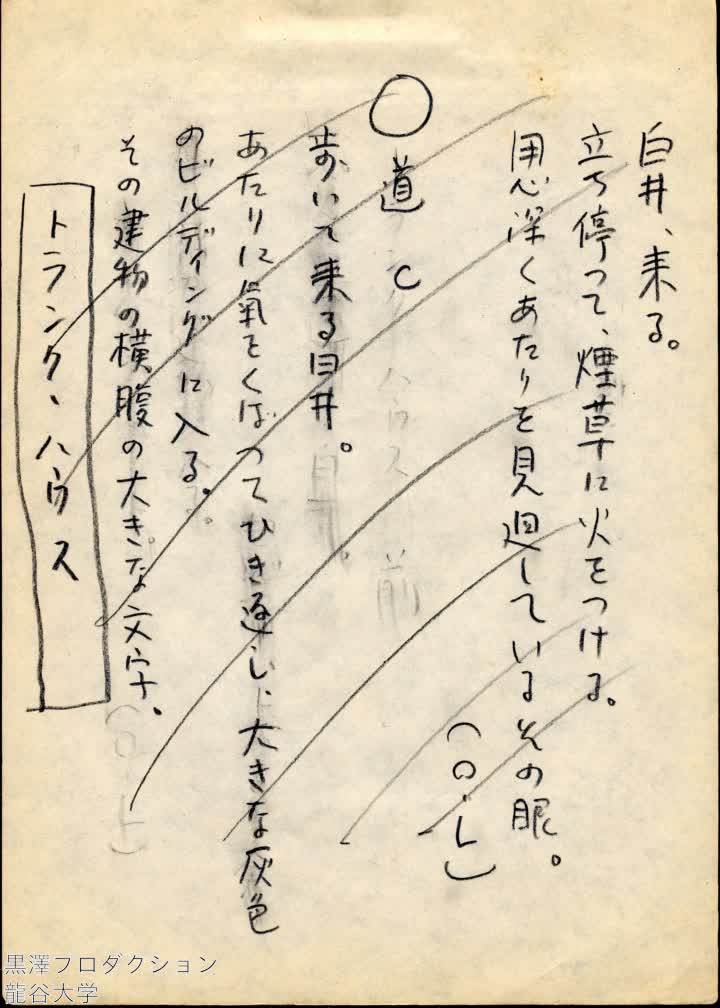 白井、来る。
立ち停って、煙草に火をつける。
用心深くあたりを見廻しているその眼。
(O・L)
○ 道 C
歩いて来る白井。
あたりに氣をくばってひき返し、大きな灰色
のビルディングに入る。
その建物の横腹の大きな文字。
トランク・ハウス
黒澤プロダクション
龍谷大学